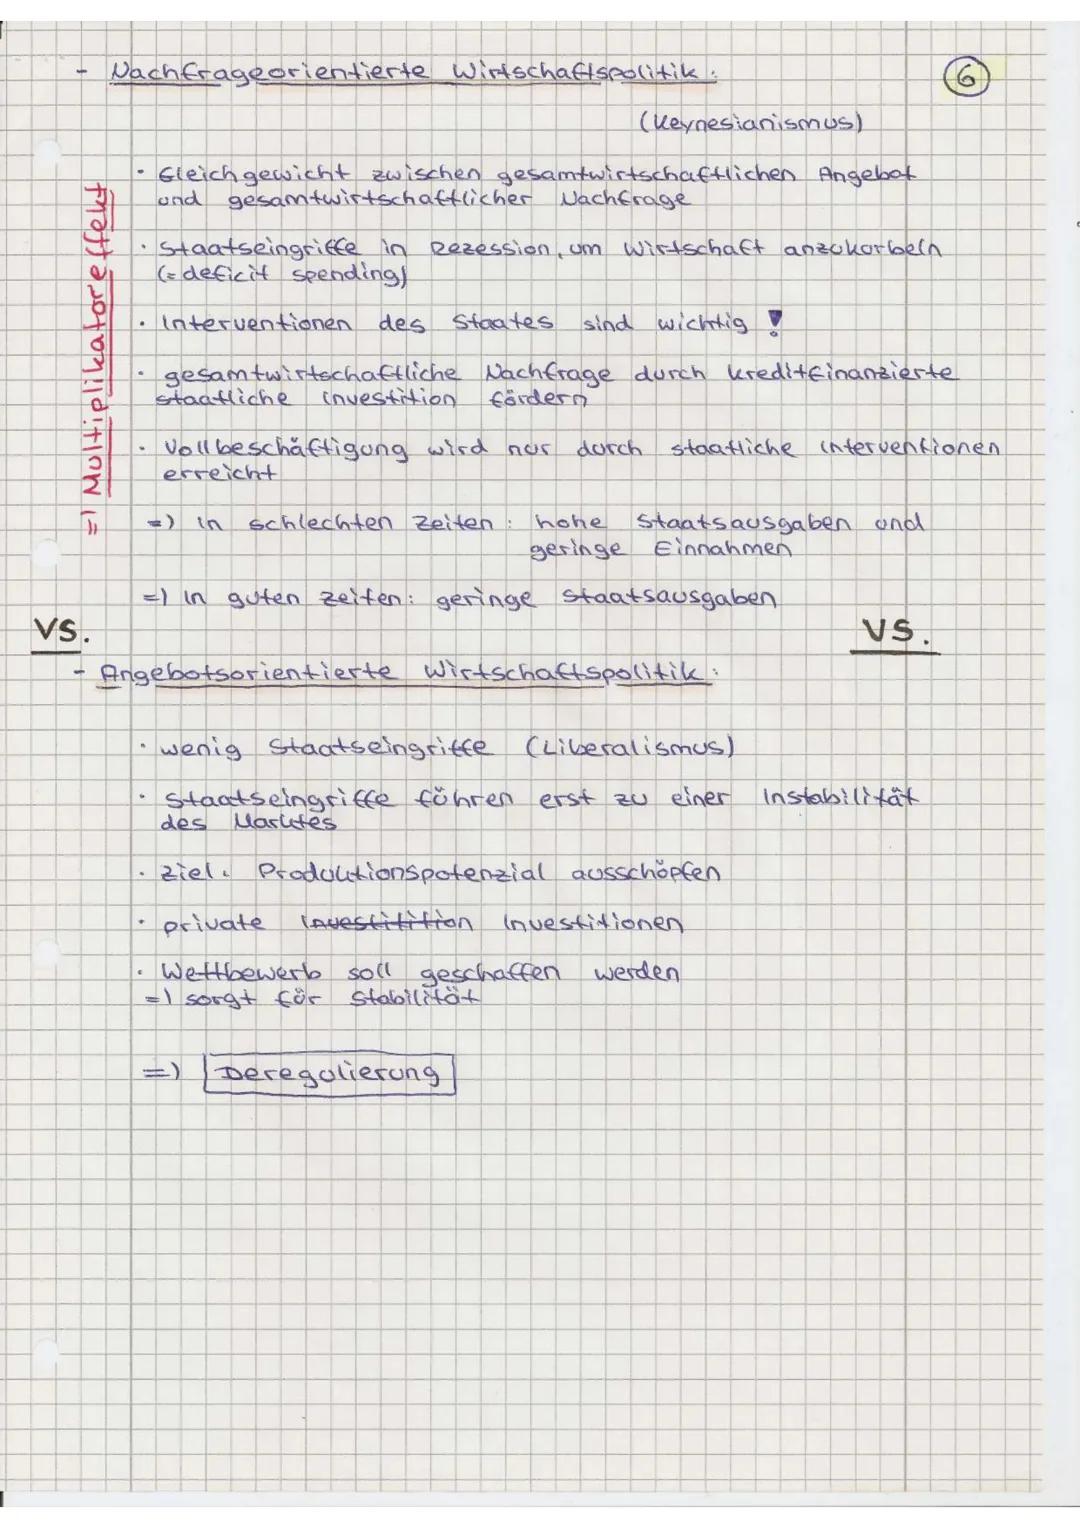 - Nachfrageorientierte Wirtschaftspolitik:
6
(Keynesianismus)
=) Multiplikatoreffekt
· Gleichgewicht zwischen gesamtwirtschaftlichen Angebot
und gesamtwirtschaftlicher Nachfrage
· Staatseingriffe in Rezession, um Wirtschaft anzukurbeln
(= deficit spending)
· Interventionen des Staates sind wichtig !
· gesamtwirtschaftliche Nachfrage durch kreditfinanzierte
staatliche Investition fördern
· Vollbeschäftigung wird nur durch staatliche Interventionen
erreicht
=) in schlechten Zeiten: hohe Staatsausgaben und
geringe Einnahmen
=) in guten Zeiten: geringe Staatsausgaben
VS. VS.
- Angebotsorientierte Wirtschaftspolitik:
· wenig Staatseingriffe (Liberalismus)
· Staatseingriffe führen erst zu einer Instabilität
des Marktes
· Ziel: Produktionspotenzial ausschöpfen
· private Investitition Investitionen
· Wettbewerb soll geschaffen werden
=) sorgt für Stabilität
=) Deregulierung